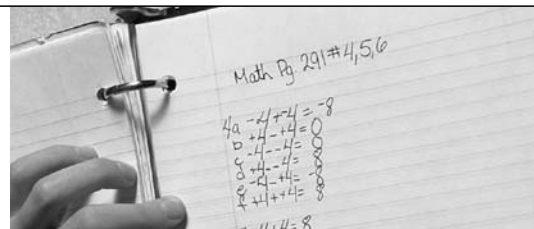 Math Pg. 291 #4,5,6
4a -4+-4=-8
b +4-+4=0
c -4--4=0
d +4--4=8
e -4-+4=-8
f +4++4=8
4+4=8